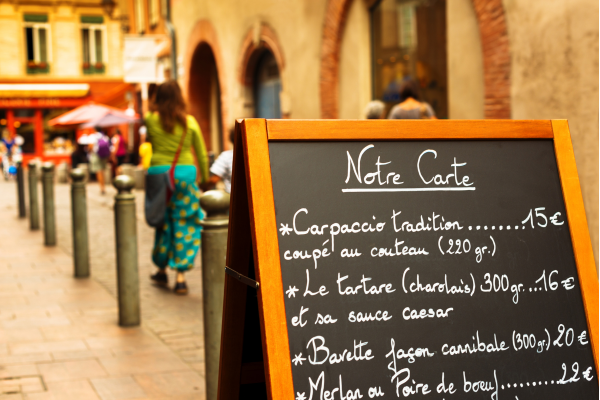 Notre Carte
*Carpaccio tradition ........15€
coupé au couteau (220 gr.)
*Le tartare (charolais) 300gr...16€
et sa sauce caesar
*Bavette façon cannibale (300gr) 20€
*Merlan ou Poire de boeuf...........22€